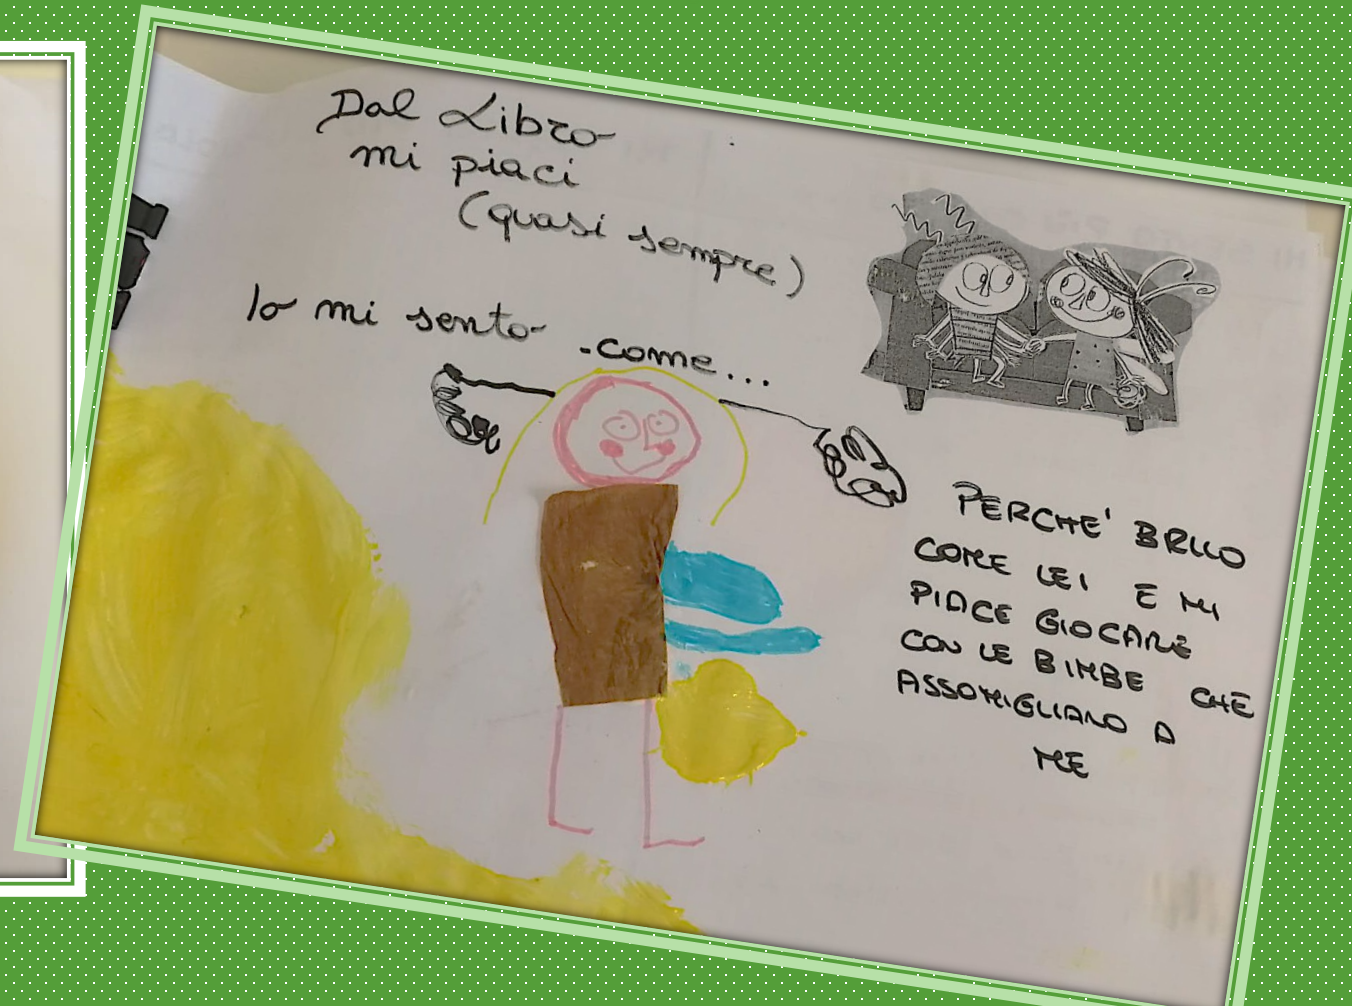 Dal Libro
mi piaci
(quasi sempre)
Io mi sento
.come...
PERCHE' BRILLO
COME LEI E MI
PIACE GIOCARE
CON LE BIMBE CHE
ASSOMIGLIANO A
ME